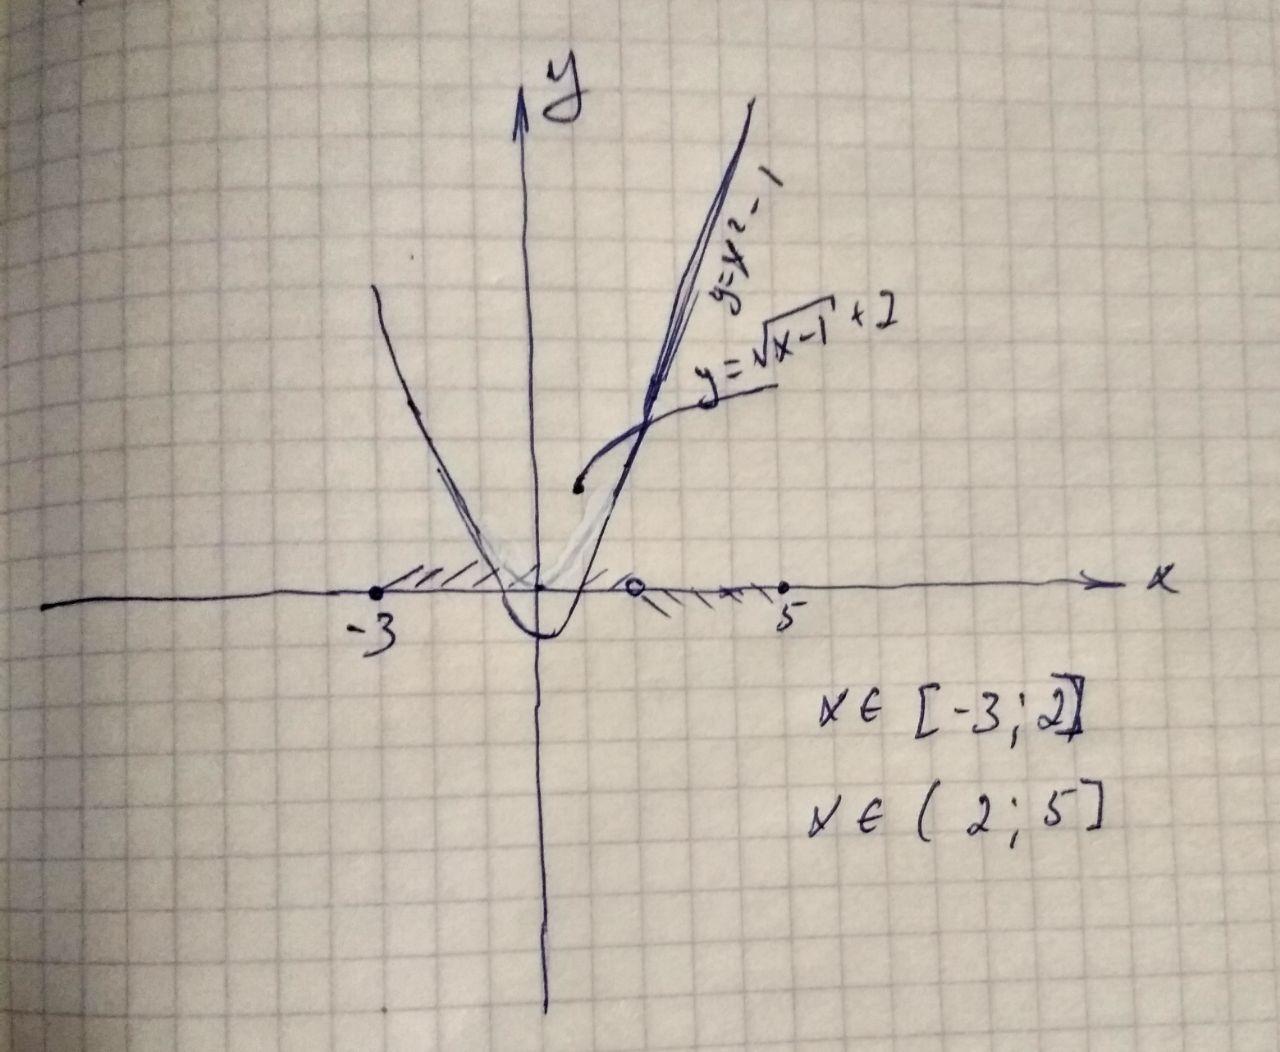 y
y=x²-1
y=√(x-1)+2
x
-3
5
x∈[-3;2]
x∈(2;5]